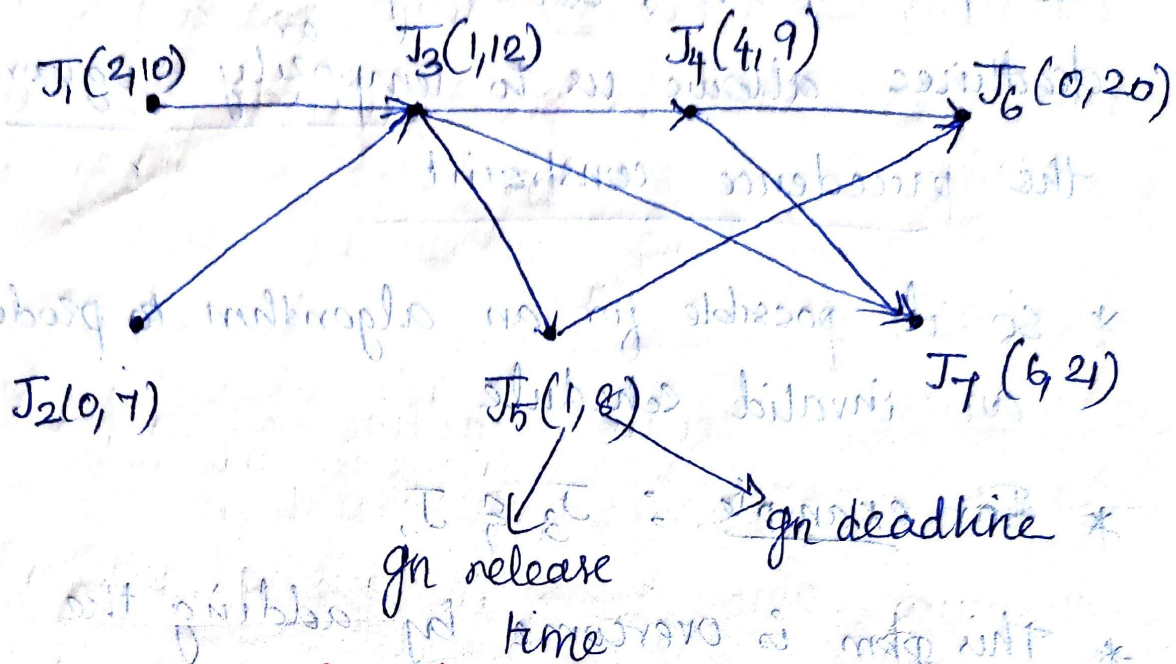 J1(2,10)
J3(1,12)
J4(4,9)
J6(0,20)
J2(0,7)
J5(1,8)
J7(6,21)
gn release
time
gn deadline